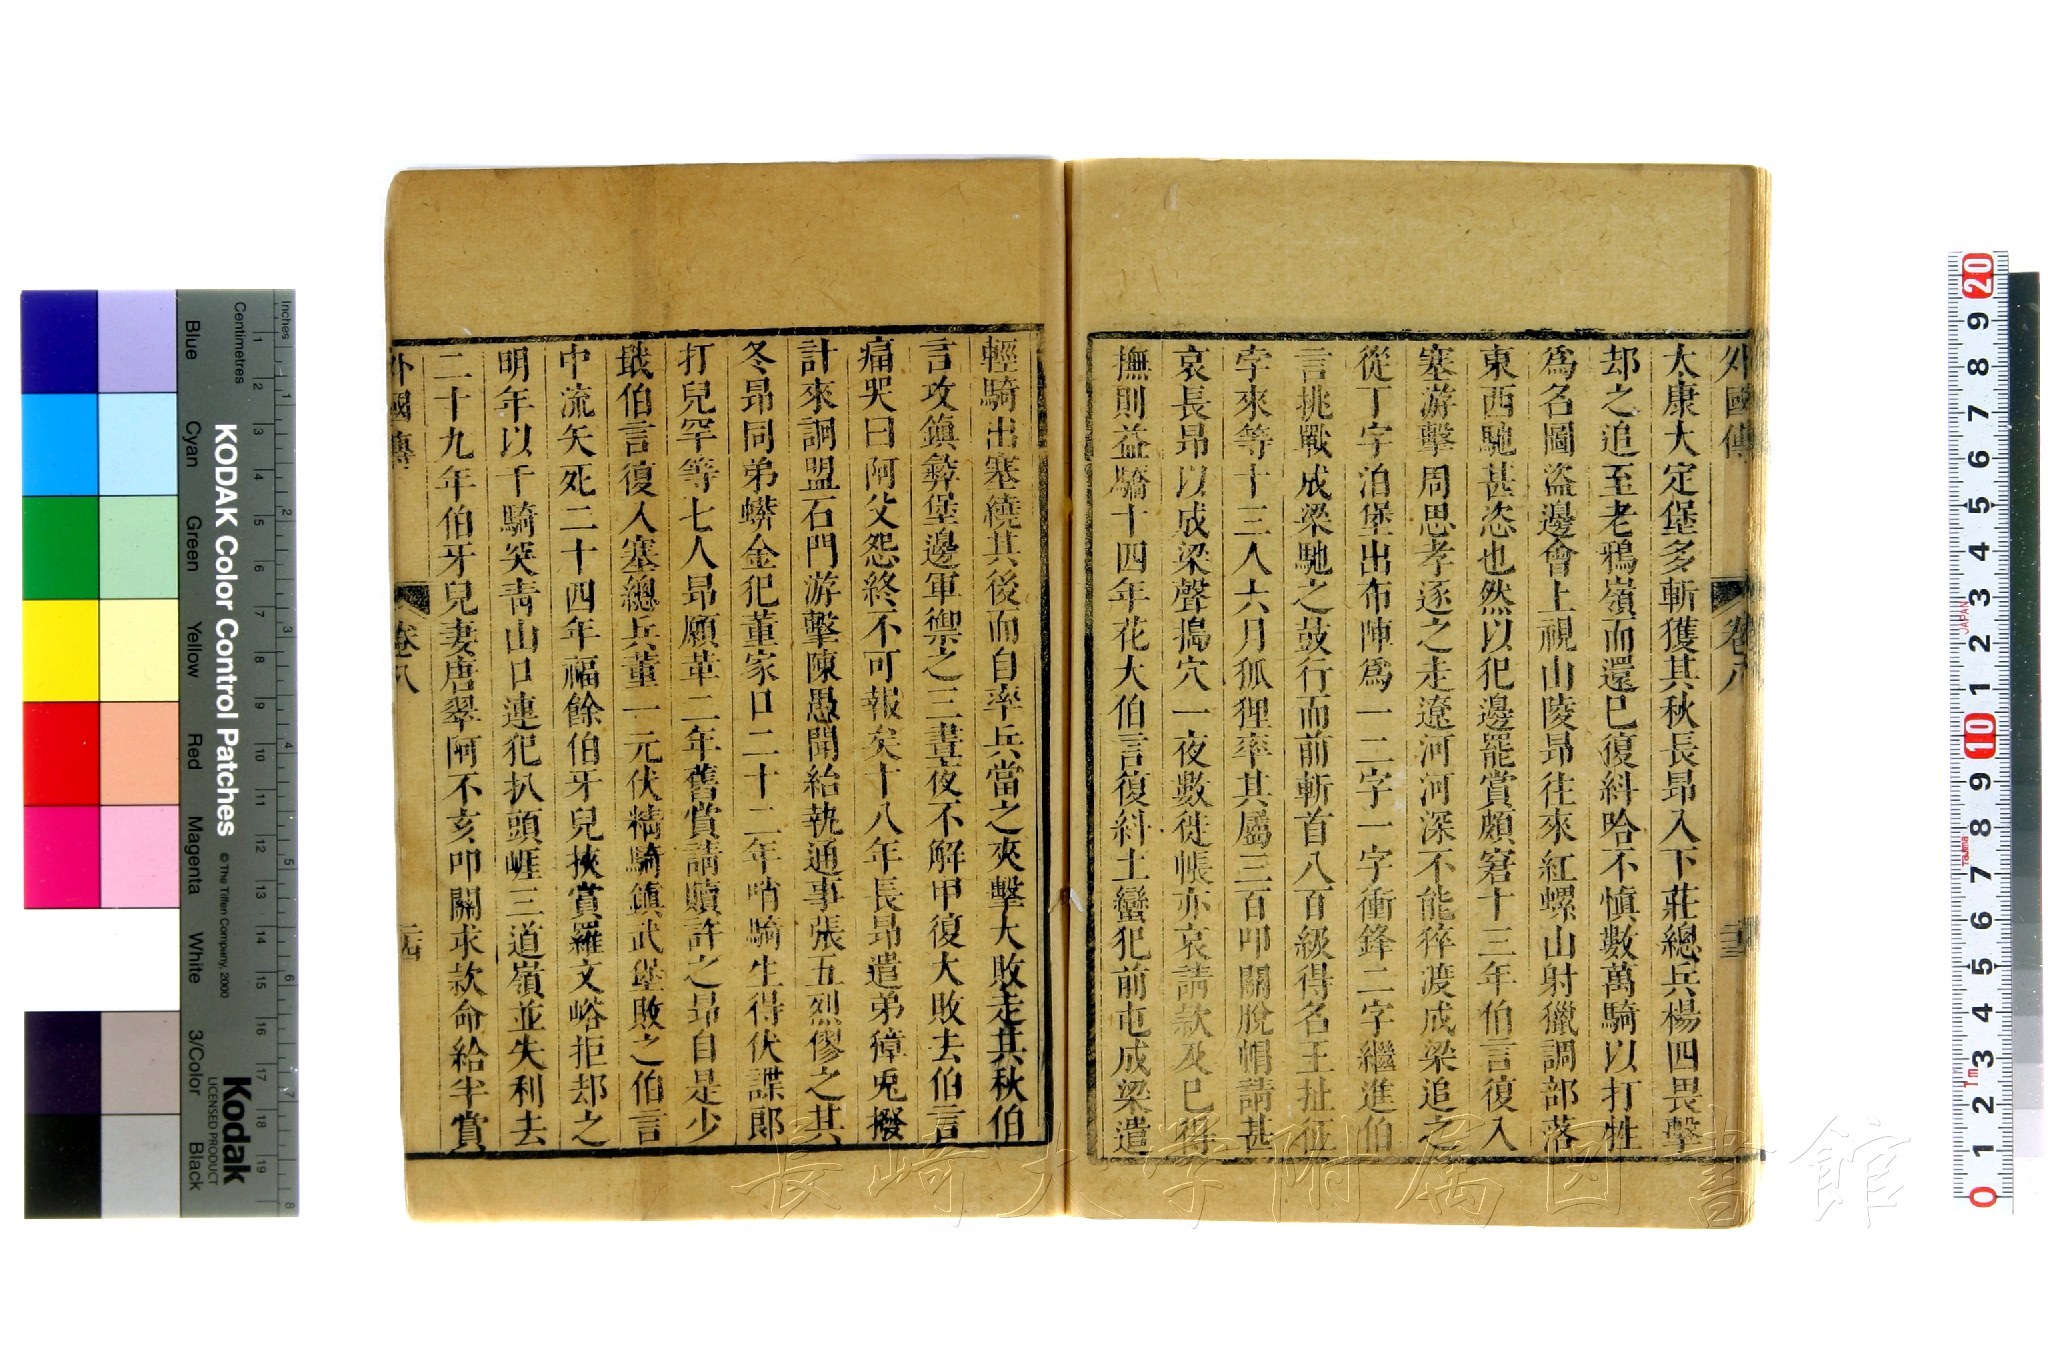 外國傳
卷八
二十三
太康大定堡多斬獲其秋長昂入下莊總兵楊四畏擊
却之追至老鴉嶺而還已復糾哈不愼數萬騎以打牲
爲名圖盜邊會上視山陵昂往來紅螺山射獵調部落
東西馳甚恣也然以犯邊罷賞頗窘十三年伯言復入
塞游擊周思孝逐之走遼河河深不能猝渡成梁追之
從丁字泊堡出布陣爲一二字一字衝鋒二字繼進伯
言挑戰成梁馳之鼓行而前斬首八百級得名王扯征
孛來等十三人六月狐狸率其屬三百叩關脫帽請甚
哀長昂以成梁聲搗穴一夜數徙帳亦哀請款及已得
撫則益驕十四年花大伯言復糾土蠻犯前屯成梁遣
輕騎出塞繞其後而自率兵當之夾擊大敗走其秋伯
言攻鎭彝堡邊軍禦之三晝夜不解甲復大敗去伯言
痛哭曰阿父怨終不可報矣十八年長昂遣弟獐兎撥
計來詗盟石門游擊陳愚聞紿執通事張五烈僇之其
冬昂同弟蟒金犯董家口二十二年哨騎生得伏諜郎
打兒罕等七人昂願革二年舊賞請贖許之昂自是少
戢伯言復入塞總兵董一元伏精騎鎭武堡敗之伯言
中流矢死二十四年福餘伯牙兒挾賞羅文峪拒却之
明年以千騎突靑山口連犯扒頭崖三道嶺並失利去
二十九年伯牙兒妻唐翠阿不亥叩關求款命給半賞
外國傳
卷八
二十四
長崎大学附属図書館
KODAK Color Control Patches
© The Tiffen Company, 2000
Kodak
LICENSED PRODUCT
Inches
Centimetres
Blue
Cyan
Green
Yellow
Red
Magenta
White
3/Color
Black
JAPAN
Tajima